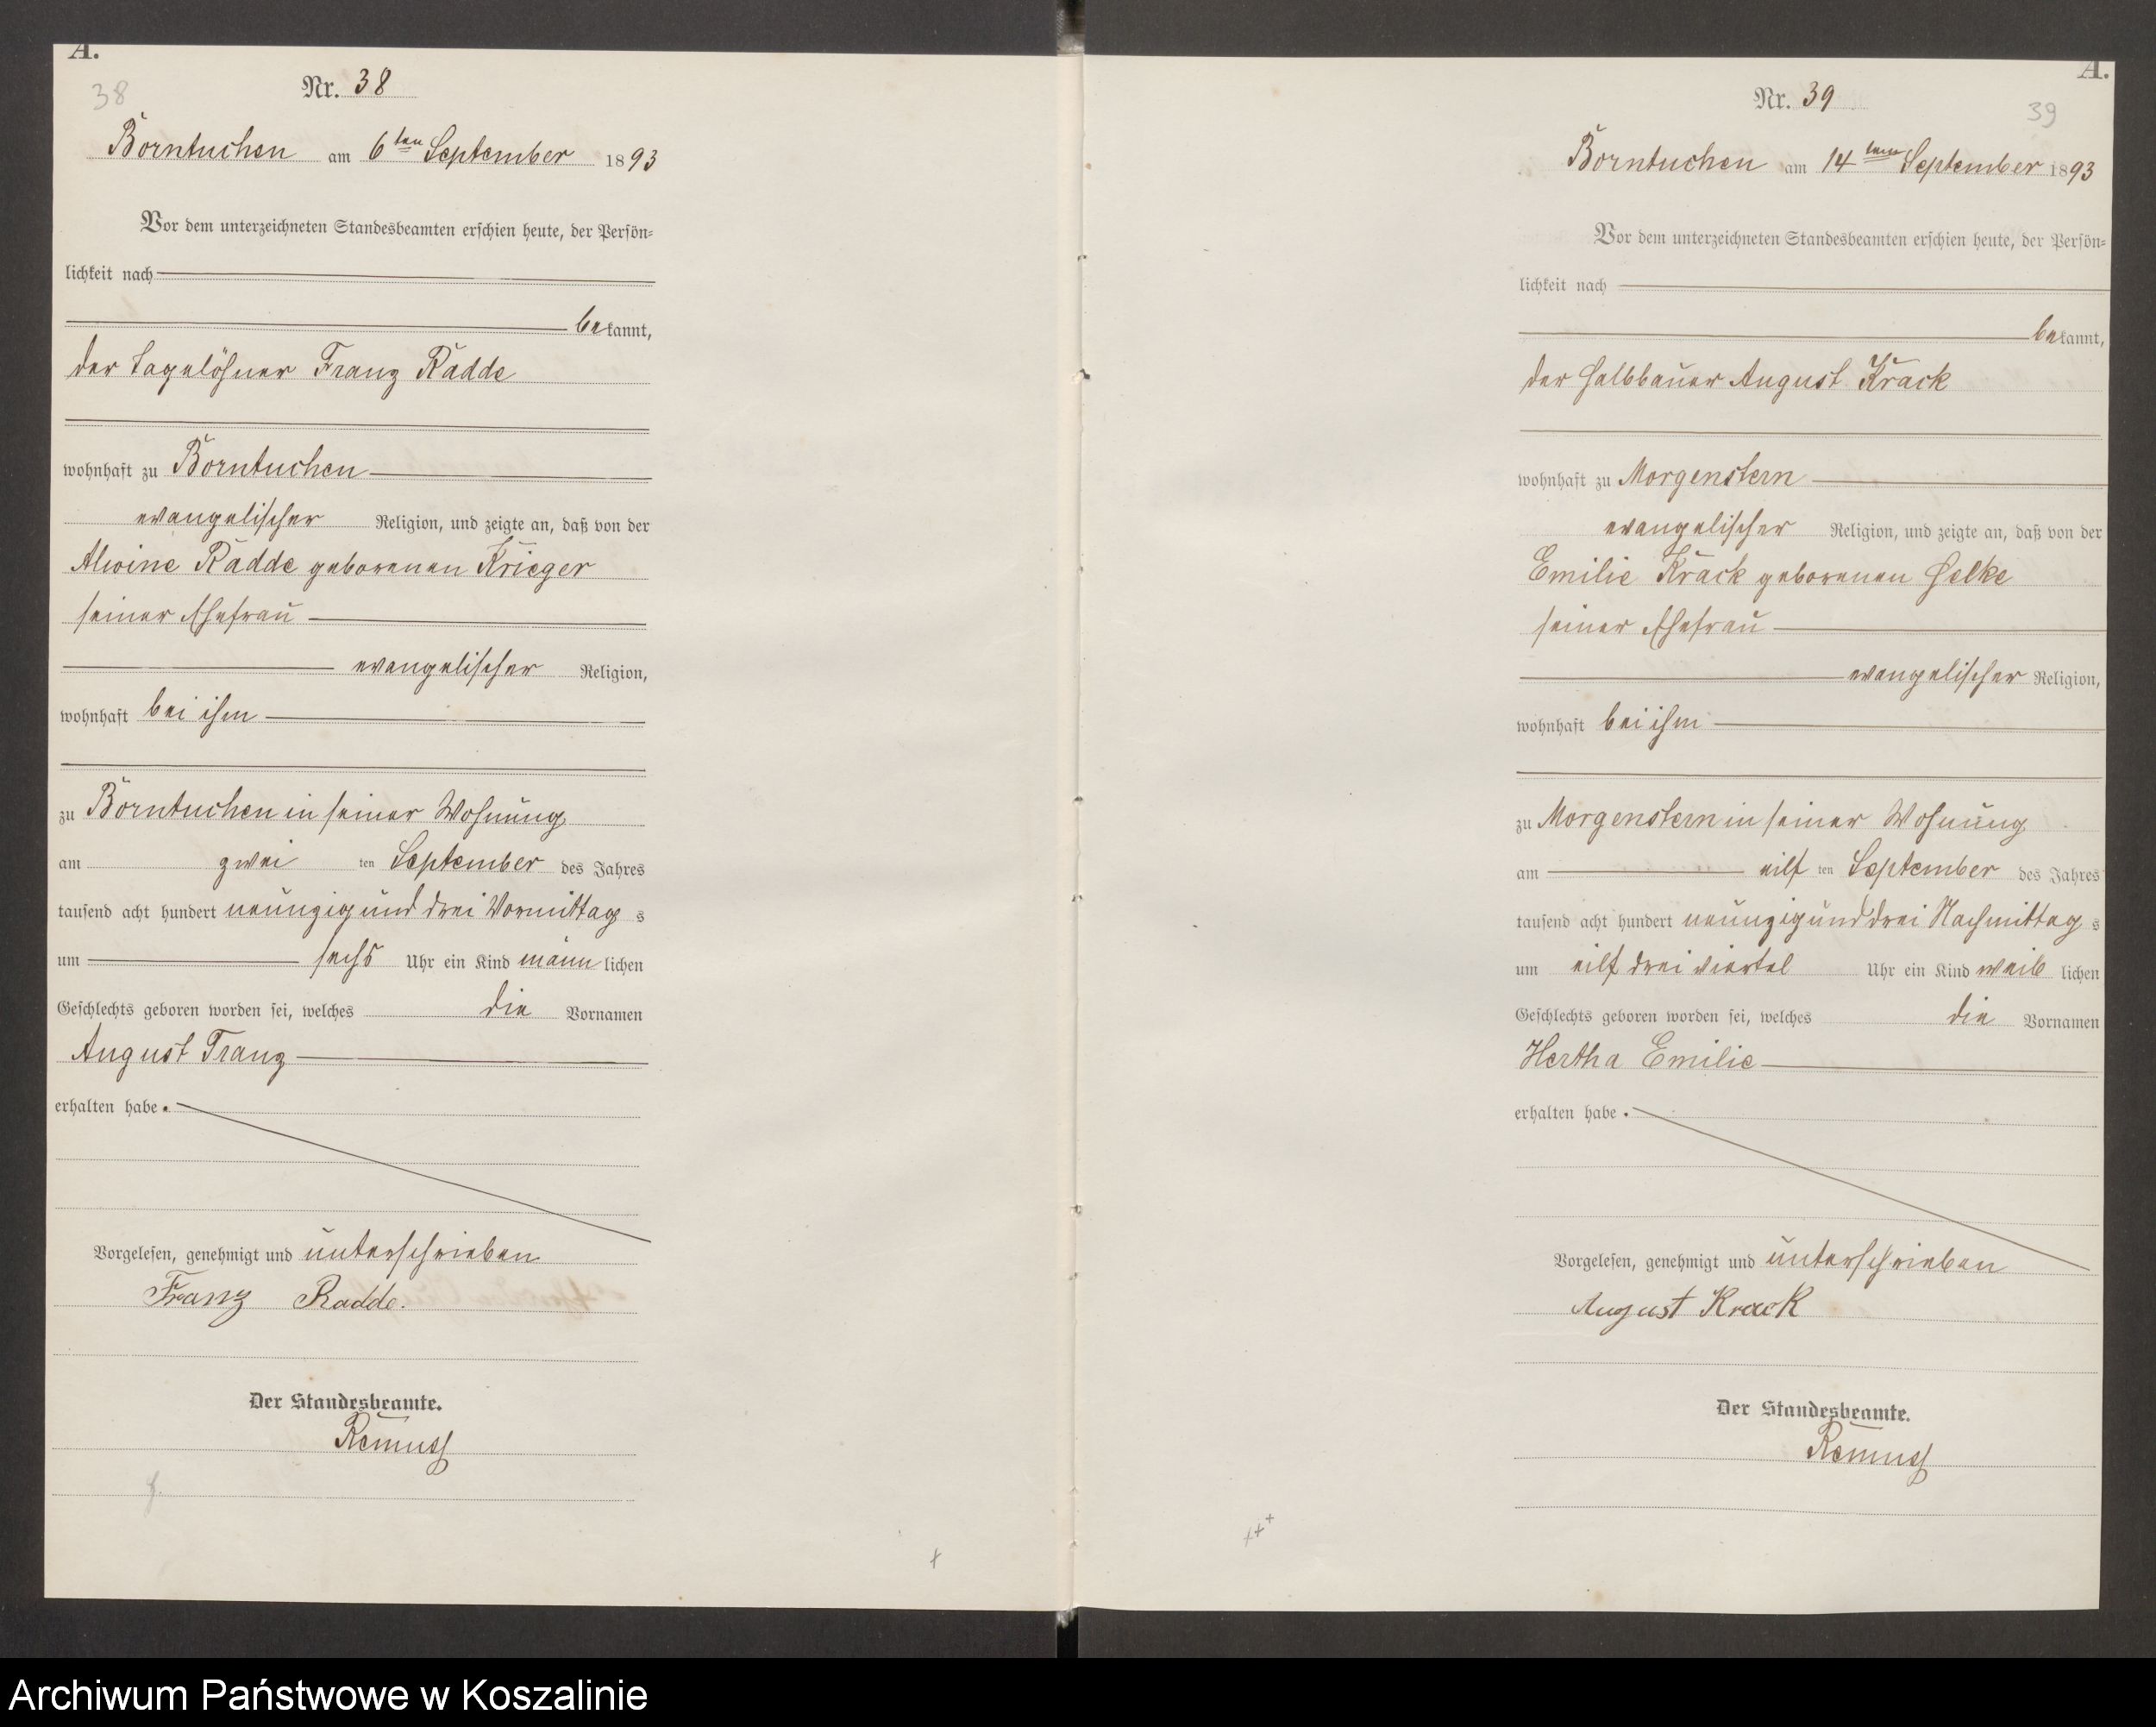 A.
38
Nr. 38
Borntuchen am 6ten September 1893
Vor dem unterzeichneten Standesbeamten erschien heute, der Persön=
lichkeit nach
bekannt,
der Tagelöhner Franz Radde
wohnhaft zu Borntuchen
evangelischer Religion, und zeigte an, daß von der
Alwine Radde geborenen Krieger
seiner Ehefrau
evangelischer Religion,
wohnhaft bei ihm
zu Borntuchen in seiner Wohnung
am zwei ten September des Jahres
tausend acht hundert neunzig und drei Vormittag s
um sechs Uhr ein Kind männ lichen
Geschlechts geboren worden sei, welches die Vornamen
August Franz
erhalten habe.
Vorgelesen, genehmigt und unterschrieben
Franz Radde.
Der Standesbeamte.
Remus
A.
Nr. 39
39
Borntuchen am 14ten September 1893
Vor dem unterzeichneten Standesbeamten erschien heute, der Persön=
lichkeit nach
bekannt,
der Halbbauer August Krack
wohnhaft zu Morgenstern
evangelischer Religion, und zeigte an, daß von der
Emilie Krack geborenen Helke
seiner Ehefrau
evangelischer Religion,
wohnhaft bei ihm
zu Morgenstern in seiner Wohnung
am eilf ten September des Jahres
tausend acht hundert neunzig und drei Nachmittag s
um eilf drei viertel Uhr ein Kind weib lichen
Geschlechts geboren worden sei, welches die Vornamen
Hertha Emilie
erhalten habe.
Vorgelesen, genehmigt und unterschrieben
August Krack
Der Standesbeamte.
Remus
Archiwum Państwowe w Koszalinie